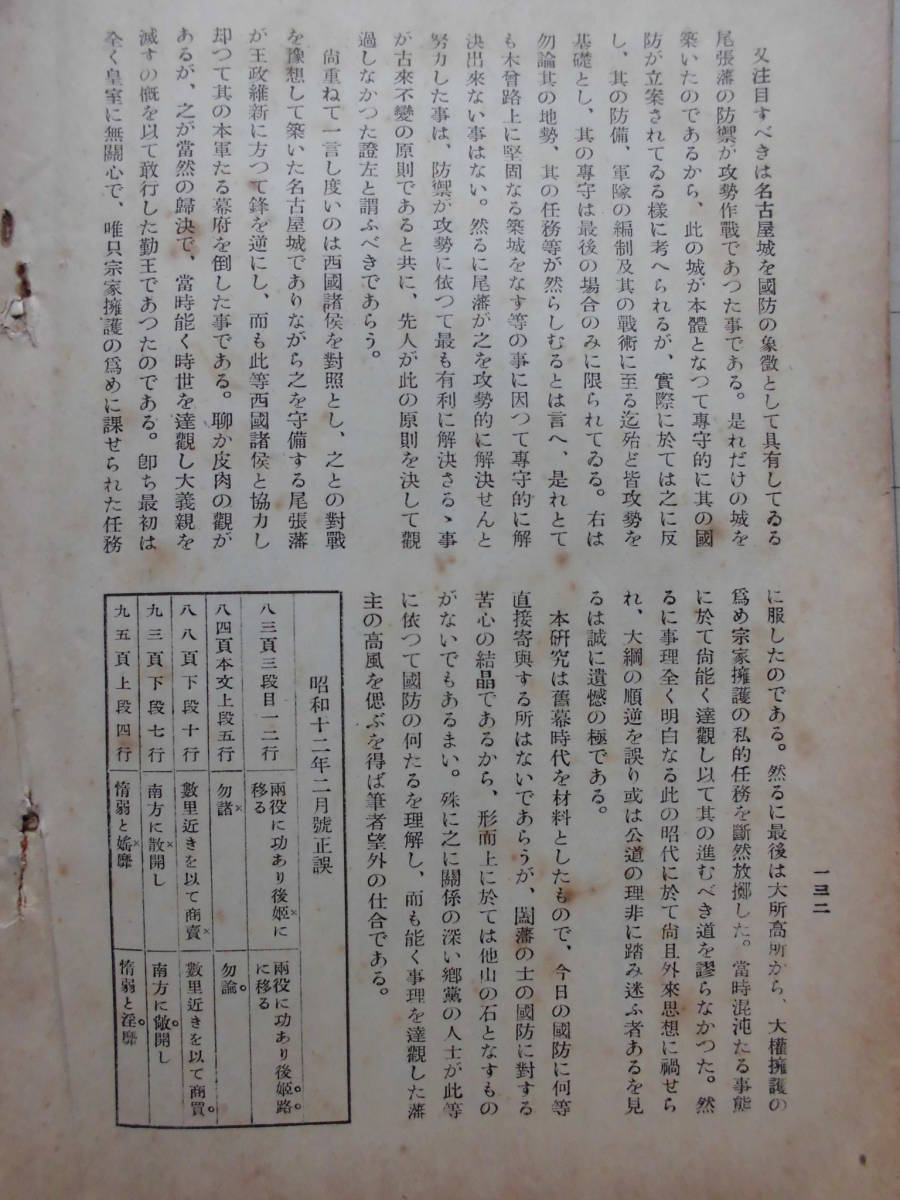 又注目すべきは名古屋城を國防の象徵として具有してゐる
尾張藩の防禦が攻勢作戰であつた事である。是れだけの城を
築いたのであるから、此の城が本體となつて專守的に其の國
防が立案されてゐる樣に考へられるが、實際に於ては之に反
し、其の防備、軍隊の編制及其の戰術に至る迄殆ど皆攻勢を
基礎とし、其の專守は最後の場合のみに限られてゐる。右は
勿論其の地勢、其の任務等が然らしむるとは言へ、是れとて
も木曾路上に堅固なる築城をなす等の事に因つて專守的に解
決出來ない事はない。然るに尾藩が之を攻勢的に解決せんと
努力した事は、防禦が攻勢に依つて最も有利に解決さるゝ事
が古來不變の原則であると共に、先人が此の原則を決して觀
過しなかつた證左と謂ふべきであらう。
尙重ねて一言し度いのは西國諸侯を對照とし、之との對戰
を豫想して築いた名古屋城でありながら之を守備する尾張藩
が王政維新に方つて鋒を逆にし、而も此等西國諸侯と協力し
却つて其の本軍たる幕府を倒した事である。聊か皮肉の觀が
あるが、之が當然の歸決で、當時能く時世を達觀し大義親を
滅すの慨を以て敢行した勤王であつたのである。卽ち最初は
全く皇室に無關心で、唯只宗家擁護の爲めに課せられた任務
に服したのである。然るに最後は大所高所から、大權擁護の
爲め宗家擁護の私的任務を斷然放擲した。當時混沌たる事態
に於て尙能く達觀し以て其の進むべき道を謬らなかつた。然
るに事理全く明白なる此の昭代に於て尙且外來思想に禍せら
れ、大綱の順逆を誤り或は公道の理非に踏み迷ふ者あるを見
るは誠に遺憾の極である。
本硏究は舊幕時代を材料としたもので、今日の國防に何等
直接寄與する所はないであらうが、闔藩の士の國防に對する
苦心の結晶であるから、形而上に於ては他山の石となすもの
がないでもあるまい。殊に之に關係の深い鄕黨の人士が此等
に依つて國防の何たるを理解し、而も能く事理を達觀した藩
主の高風を偲ぶを得ば筆者望外の仕合である。
一三二
昭和十二年二月號正誤
八三頁三段目一二行
兩役に功あり後姬に
移る
兩役に功あり後姬路
に移る
八四頁本文上段五行
勿諸
勿論
八八頁下段十行
數里近きを以て商賣
數里近きを以て商買
九三頁下段七行
南方に散開し
南方に敞開し
九五頁上段四行
惰弱と婬靡
惰弱と淫靡